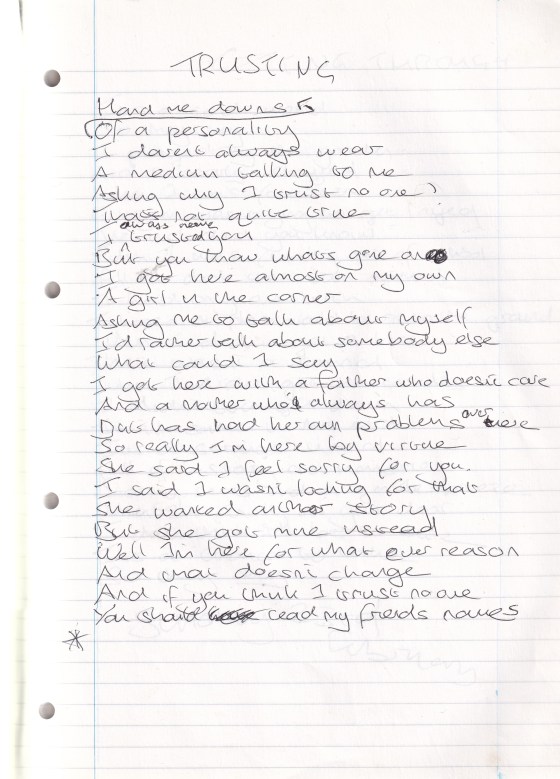 TRUSTING
Hand me downs
Of a personality
I daren't always wear
A median talking to me
Asking why I trust no one?
That's not quite true
always
I trusted you
But you know what's gone on
I got here almost on my own
A girl in the corner
Asking me to talk about myself
I'd rather talk about somebody else
What could I say
I got here with a father who doesn't care
And a mother who always has
But has had her own problems over there
So really I'm here by virtue
She said I feel sorry for you.
I said I wasn't looking for that
She wanted another story
But she got mine instead
Well I'm here for what ever reason
And that doesn't change
And if you think I trust no one
You should read my friends names
*